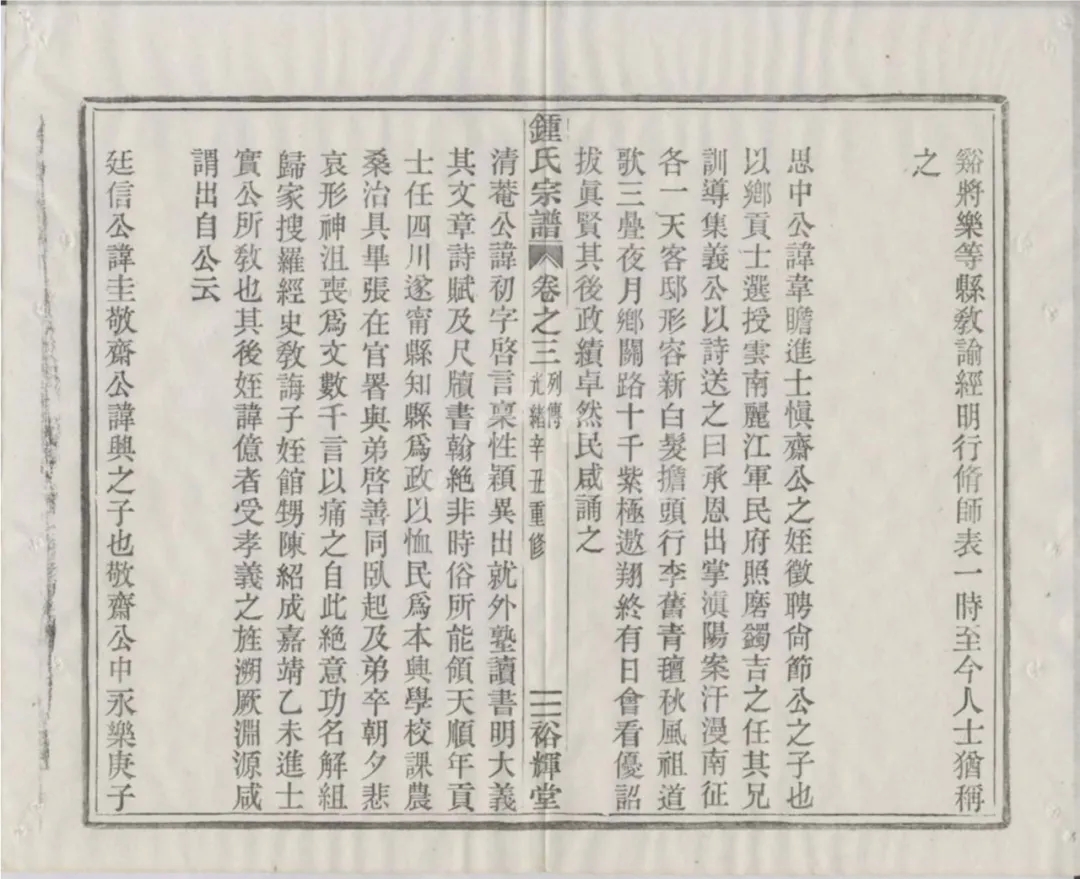 谿將樂等縣敎諭經明行脩師表一時至今人士猶稱
之
思中公諱韋瞻進士愼齋公之姪徵聘尙節公之子也
以鄉貢士選授雲南麗江軍民府照磨蠲吉之任其兄
訓導集義公以詩送之曰承恩出掌滇陽案汗漫南征
各一天客邸形容新白髮擔頭行李舊靑氊秋風祖道
歌三疊夜月鄉關路十千紫極遨翔終有日會看優詔
拔眞賢其後政績卓然民咸誦之
鍾氏宗譜 卷之三 列傳 光緖辛丑重修 三 裕輝堂
淸菴公諱初字啓言稟性穎異出就外塾讀書明大義
其文章詩賦及尺牘書翰絶非時俗所能領天順年貢
士任四川遂甯縣知縣爲政以恤民爲本興學校課農
桑治具畢張在官署與弟啓善同臥起及弟卒朝夕悲
哀形神沮喪爲文數千言以痛之自此絶意功名解組
歸家搜羅經史敎誨子姪館甥陳紹成嘉靖乙未進士
實公所敎也其後姪諱億者受孝義之旌溯厥淵源咸
謂出自公云
廷信公諱圭敬齋公諱興之子也敬齋公中永樂庚子